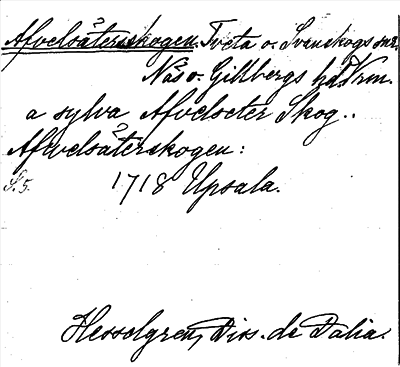 Afvelsäterskogen. Tveta o. Svanskogs snr.
Näs o. Gillbergs hd. Vrm.
a sylva Afvelseter Skog..
Afwelsåterskogen:
S. 5. 1718 Upsala.
Hesselgren, Diss. de Dalia.